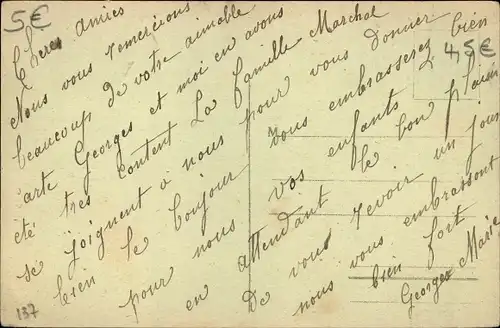 5€
Chères amies
Nous vous remercions
beaucoup de votre aimable
carte Georges et moi en avons
été très content La famille Marchal
se joignent à nous pour vous donner bien
bien le bonjour vous embrasserez bien
pour nous vos enfants
en attendant le bon plaisir
de vous revoir un jour
nous vous embrassont
bien fort
Georges Marie
4,5€
137